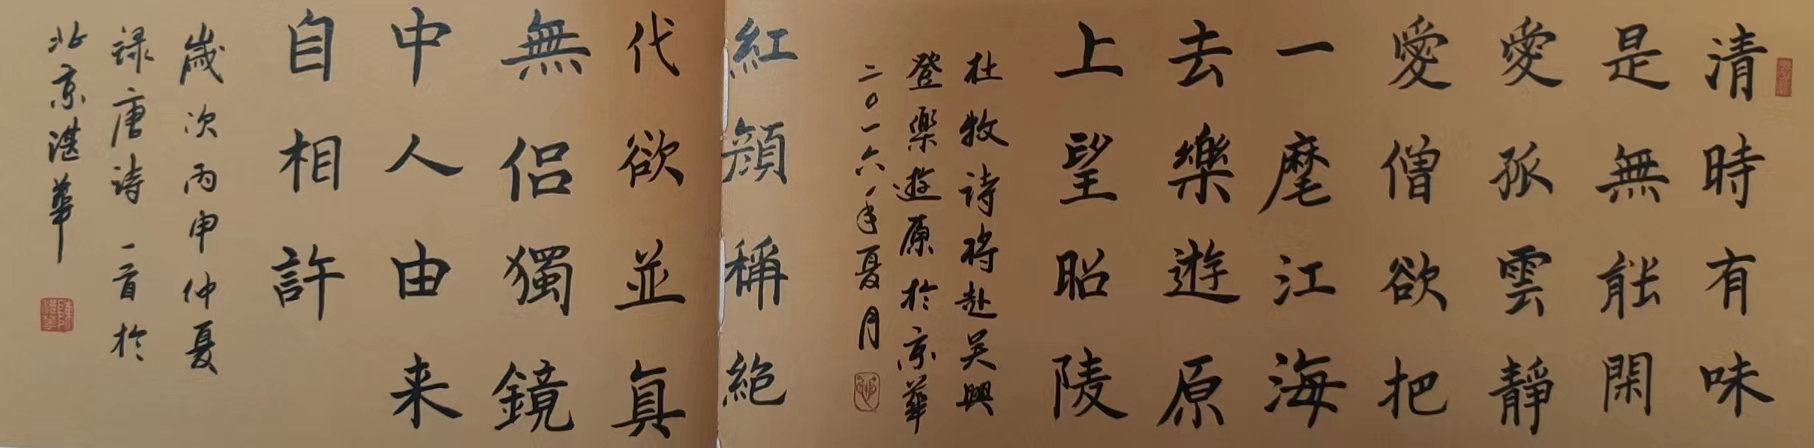 清時有味
是無能閑
愛孤雲靜
愛僧欲把
一麾江海
去樂遊原
上望昭陵
杜牧诗将赴吴興
登樂遊原於京華
二〇一六年夏月
紅顔稱絶
代欲並真
無侶獨鏡
中人由来
自相許
歲次丙申仲夏
禄唐诗一首於
北京湛華